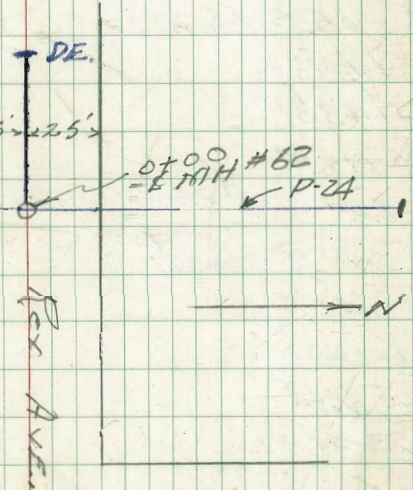 DE.
25'
0+00
=₵ MH #62
P-24
N
Rex Ave.